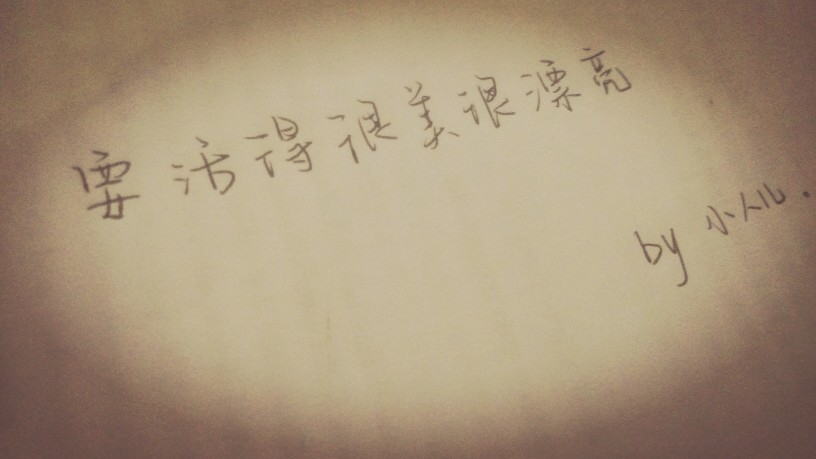 要活得很美很漂亮
by 小人儿.